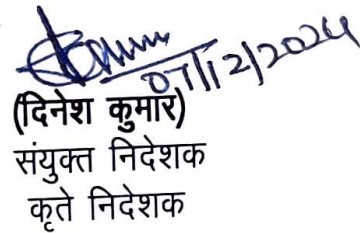 07/12/2024
(दिनेश कुमार)
संयुक्त निदेशक
कृते निदेशक